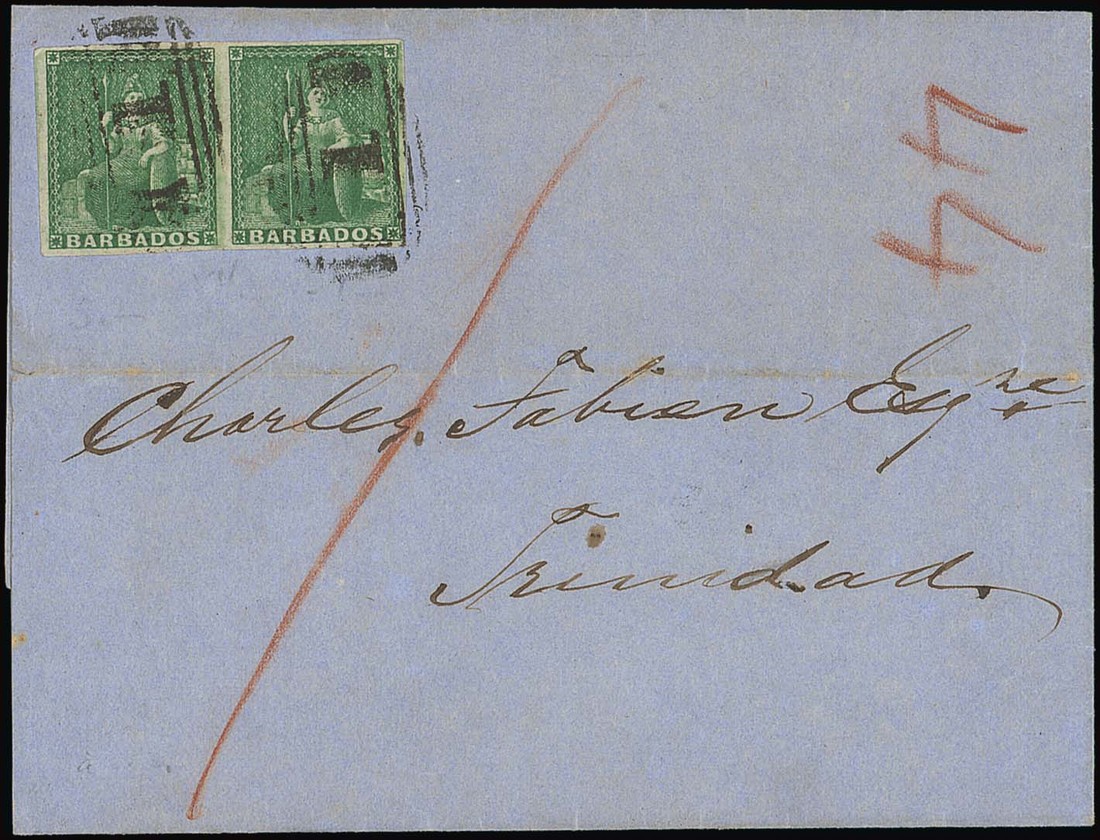 BARBADOS BARBADOS
1 1
44
Charles Fabian Esqre
Trinidad.